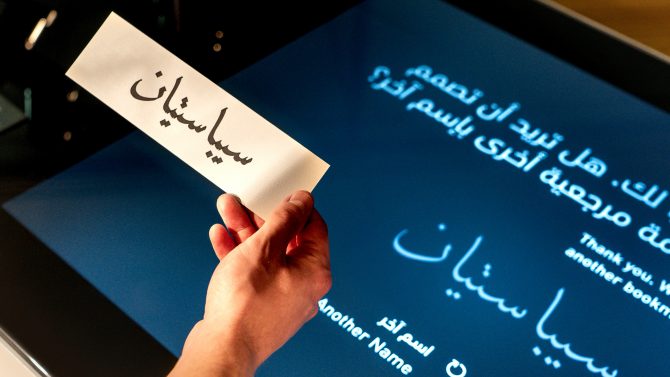 سيباستيان
لك. هل تريد أن تصمم
مة مرجعية أخرى بإسم آخر؟
Thank you. W
another bookm
سيباستيان
اسم آخر
Another Name